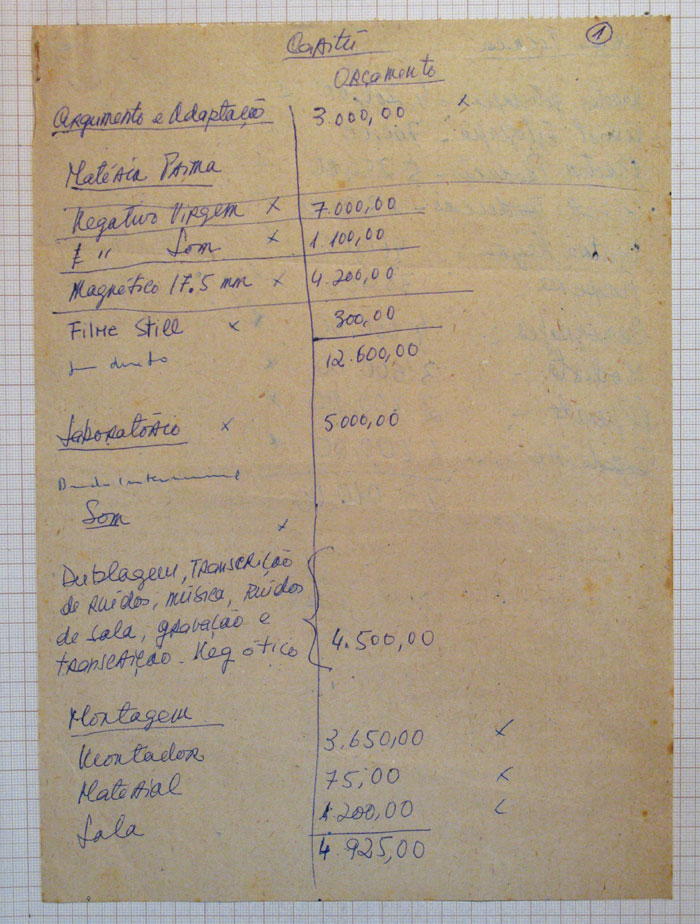 Capitú
1
Orçamento
Argumento e Adaptação 3.000,00 x
Matéria Prima
Negativo Virgem x 7.000,00
" Som x 1.100,00
Magnético 17.5 mm x 4.200,00
Filme Still x 300,00
direto 12.600,00
Laboratório x 5000,00
Banda Internacional
Som
x
Dublagem, transcrição
de ruídos, música, ruídos
de sala, gravação e
transcrição. Neg ótico 4.500,00
Montagem
Montador 3.650,00 x
Material 75,00 x
Sala 1.200,00
4.925,00